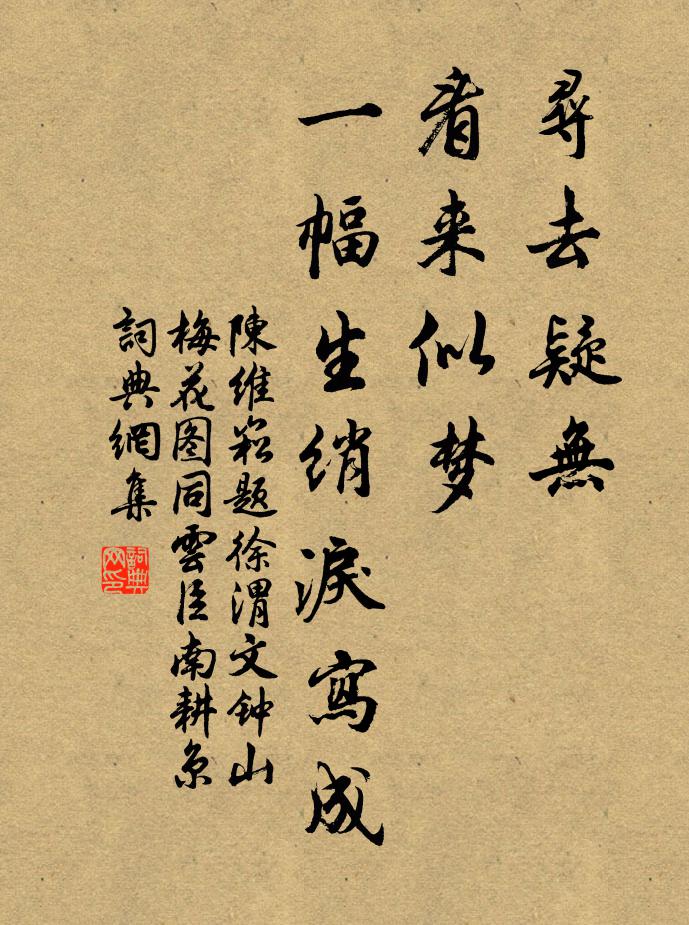 尋去疑無
看来似梦
一幅生绡淚寫成
陳维崧题徐渭文钟山
梅花图同雲臣南耕京
詞典網集
詞典网印